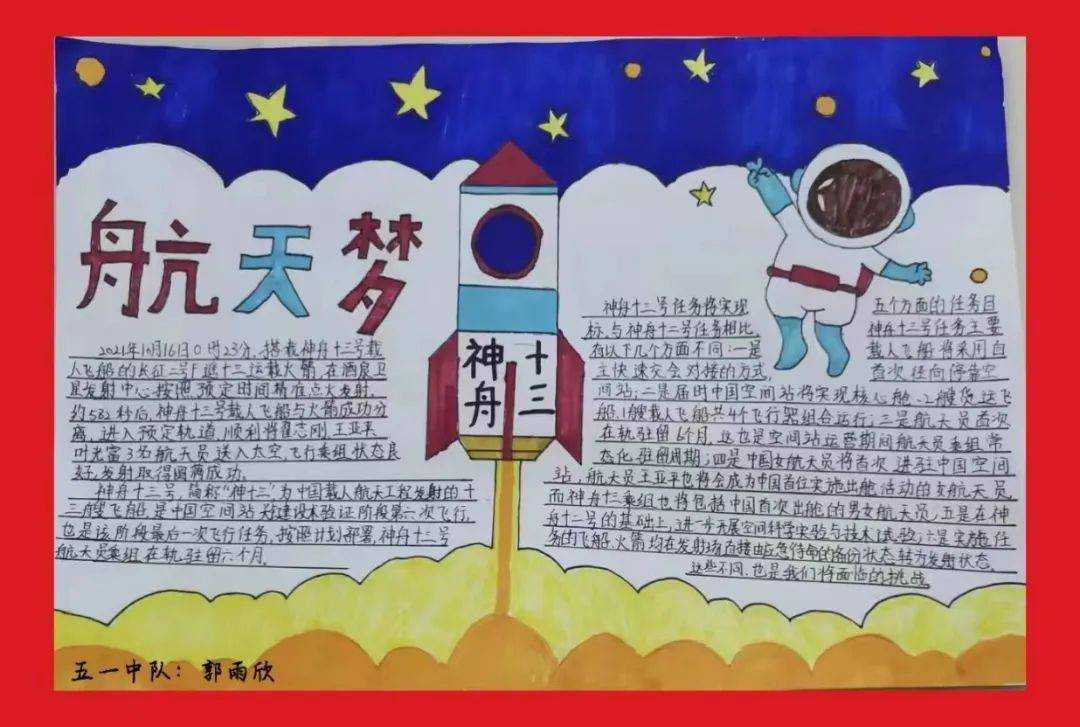 航天梦
2021年10月16日0时23分,搭载神舟十三号载
人飞船的长征二号F遥十三运载火箭,在酒泉卫
星发射中心按照预定时间精准点火发射,
约582秒后,神舟十三号载人飞船与火箭成功分
离,进入预定轨道,顺利将翟志刚、王亚平、
叶光富3名航天员送入太空,飞行乘组状态良
好,发射取得圆满成功。
神舟十三号,简称“神十三”,为中国载人航天工程发射的十
三艘飞船,是中国空间站 验证阶段第六次飞行,
也是该阶段最后一次飞行任务,按照计划部署,神舟十三号
航天员乘组在轨驻留六个月.
神舟
十三
神舟十三号任务将实现 五个方面的任务目
标,与神舟十二号任务相比 神舟十三号任务主要
有以下几个方面不同:一是 载人飞船将采用自
主快速交会对接的方式, 首次径向停靠空
间站;二是届时中国空间站将实现核心舱、2艘货运飞
船、1艘载人飞船共4个飞行器组合运行;三是航天员首次
在轨驻留6个月,这也是空间站运营期间航天员乘组常
态化驻留周期;四是中国女航天员将首次进驻中国空间
站,航天员王亚平也将会成为中国首位实施出舱活动的女航天员,
而神舟十三乘组也将包括中国首次出舱的男女航天员;五是在神
舟十二号的基础上,进一步开展空间科学实验与技术试验;六是实施任
务的飞船、火箭均在发射场直接由应急待命的备份状态转为发射状态。
这些不同,也是我们将面临的挑战。
五一中队:郭雨欣